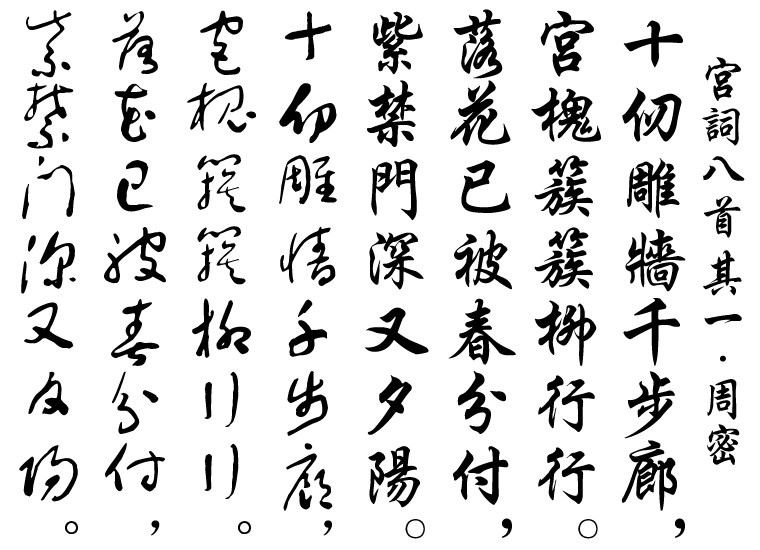 宮詞八首其一·周密
十仞雕牆千步廊，
宮槐簇簇柳行行。
落花已被春分付，
紫禁門深又夕陽。
十仞雕墙千步廊，
宫槐簇簇柳行行。
落花已被春分付，
紫禁门深又夕阳。